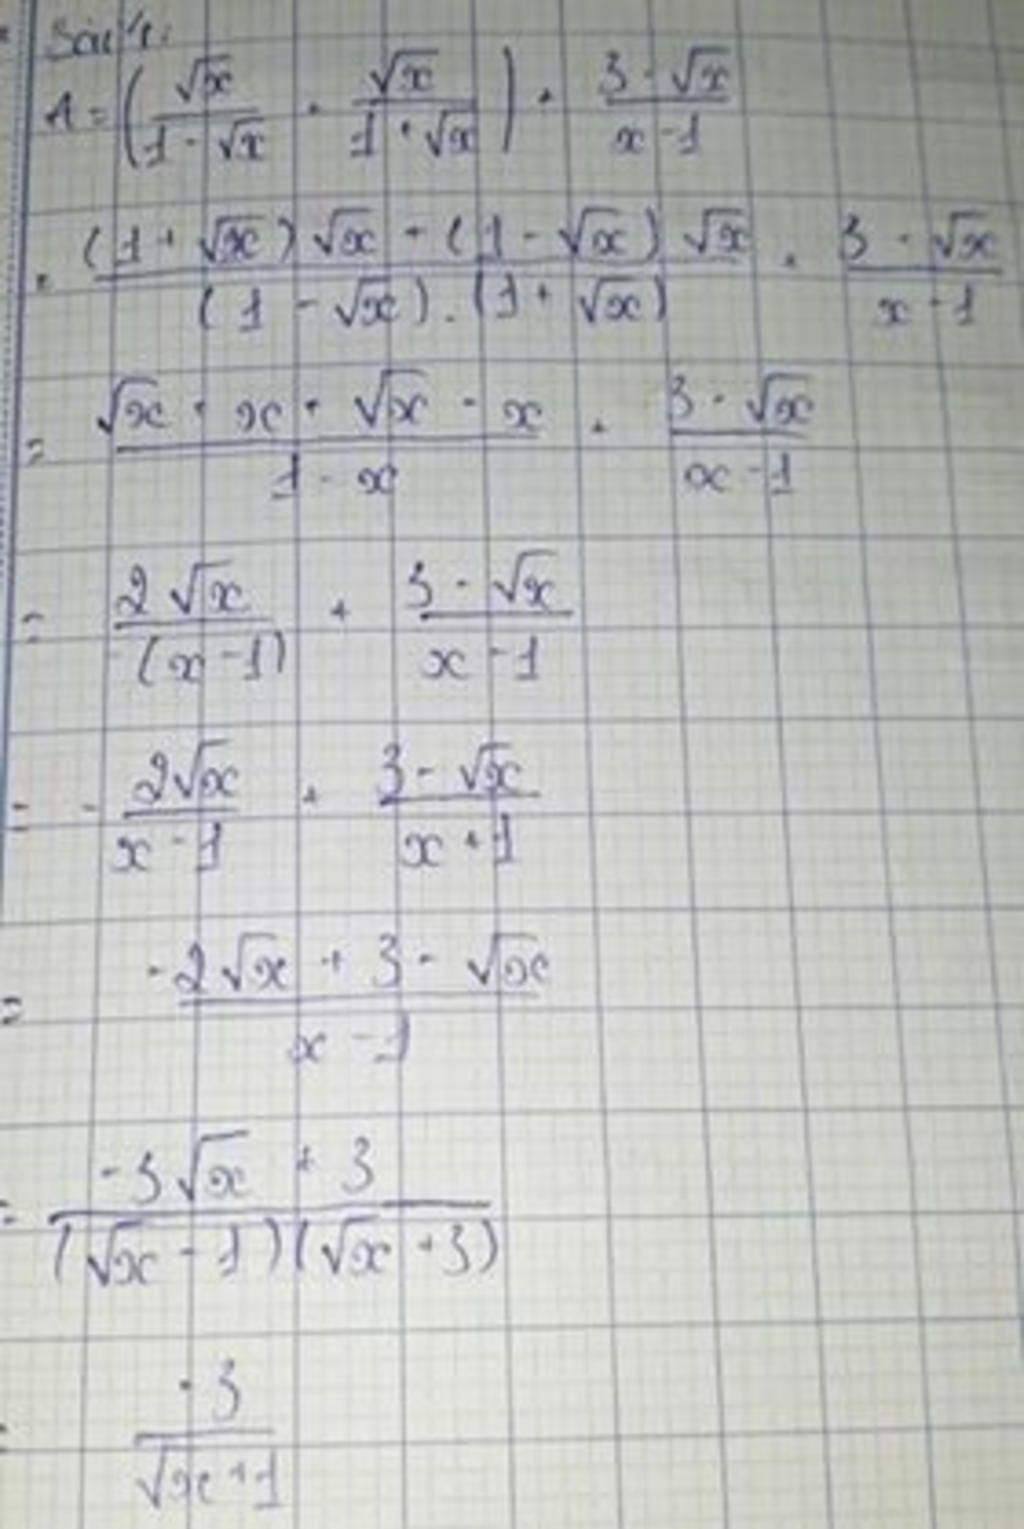 A = (√x / (1 - √x) + √x / (1 + √x)) + (3 - √x) / (x - 1)
= ((1 + √x) √x + (1 - √x) √x) / ((1 - √x) . (1 + √x)) + (3 - √x) / (x - 1)
= (√x + x + √x - x) / (1 - x) + (3 - √x) / (x - 1)
= 2√x / -(x - 1) + (3 - √x) / (x - 1)
= - 2√x / (x - 1) + (3 - √x) / (x + 1)
= (-2√x + 3 - √x) / (x - 1)
= (-3√x + 3) / ((√x - 1)(√x + 3))
= -3 / (√x + 1)